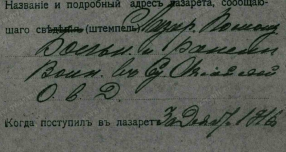 Названіе и подробный адресъ лазарета, сообщаю-
щаго свѣдѣнія (штемпель)
Больн. и Ранен
Воин. въ
О. в. Д.
Когда поступилъ въ лазаретъ 30 Декабр 1916